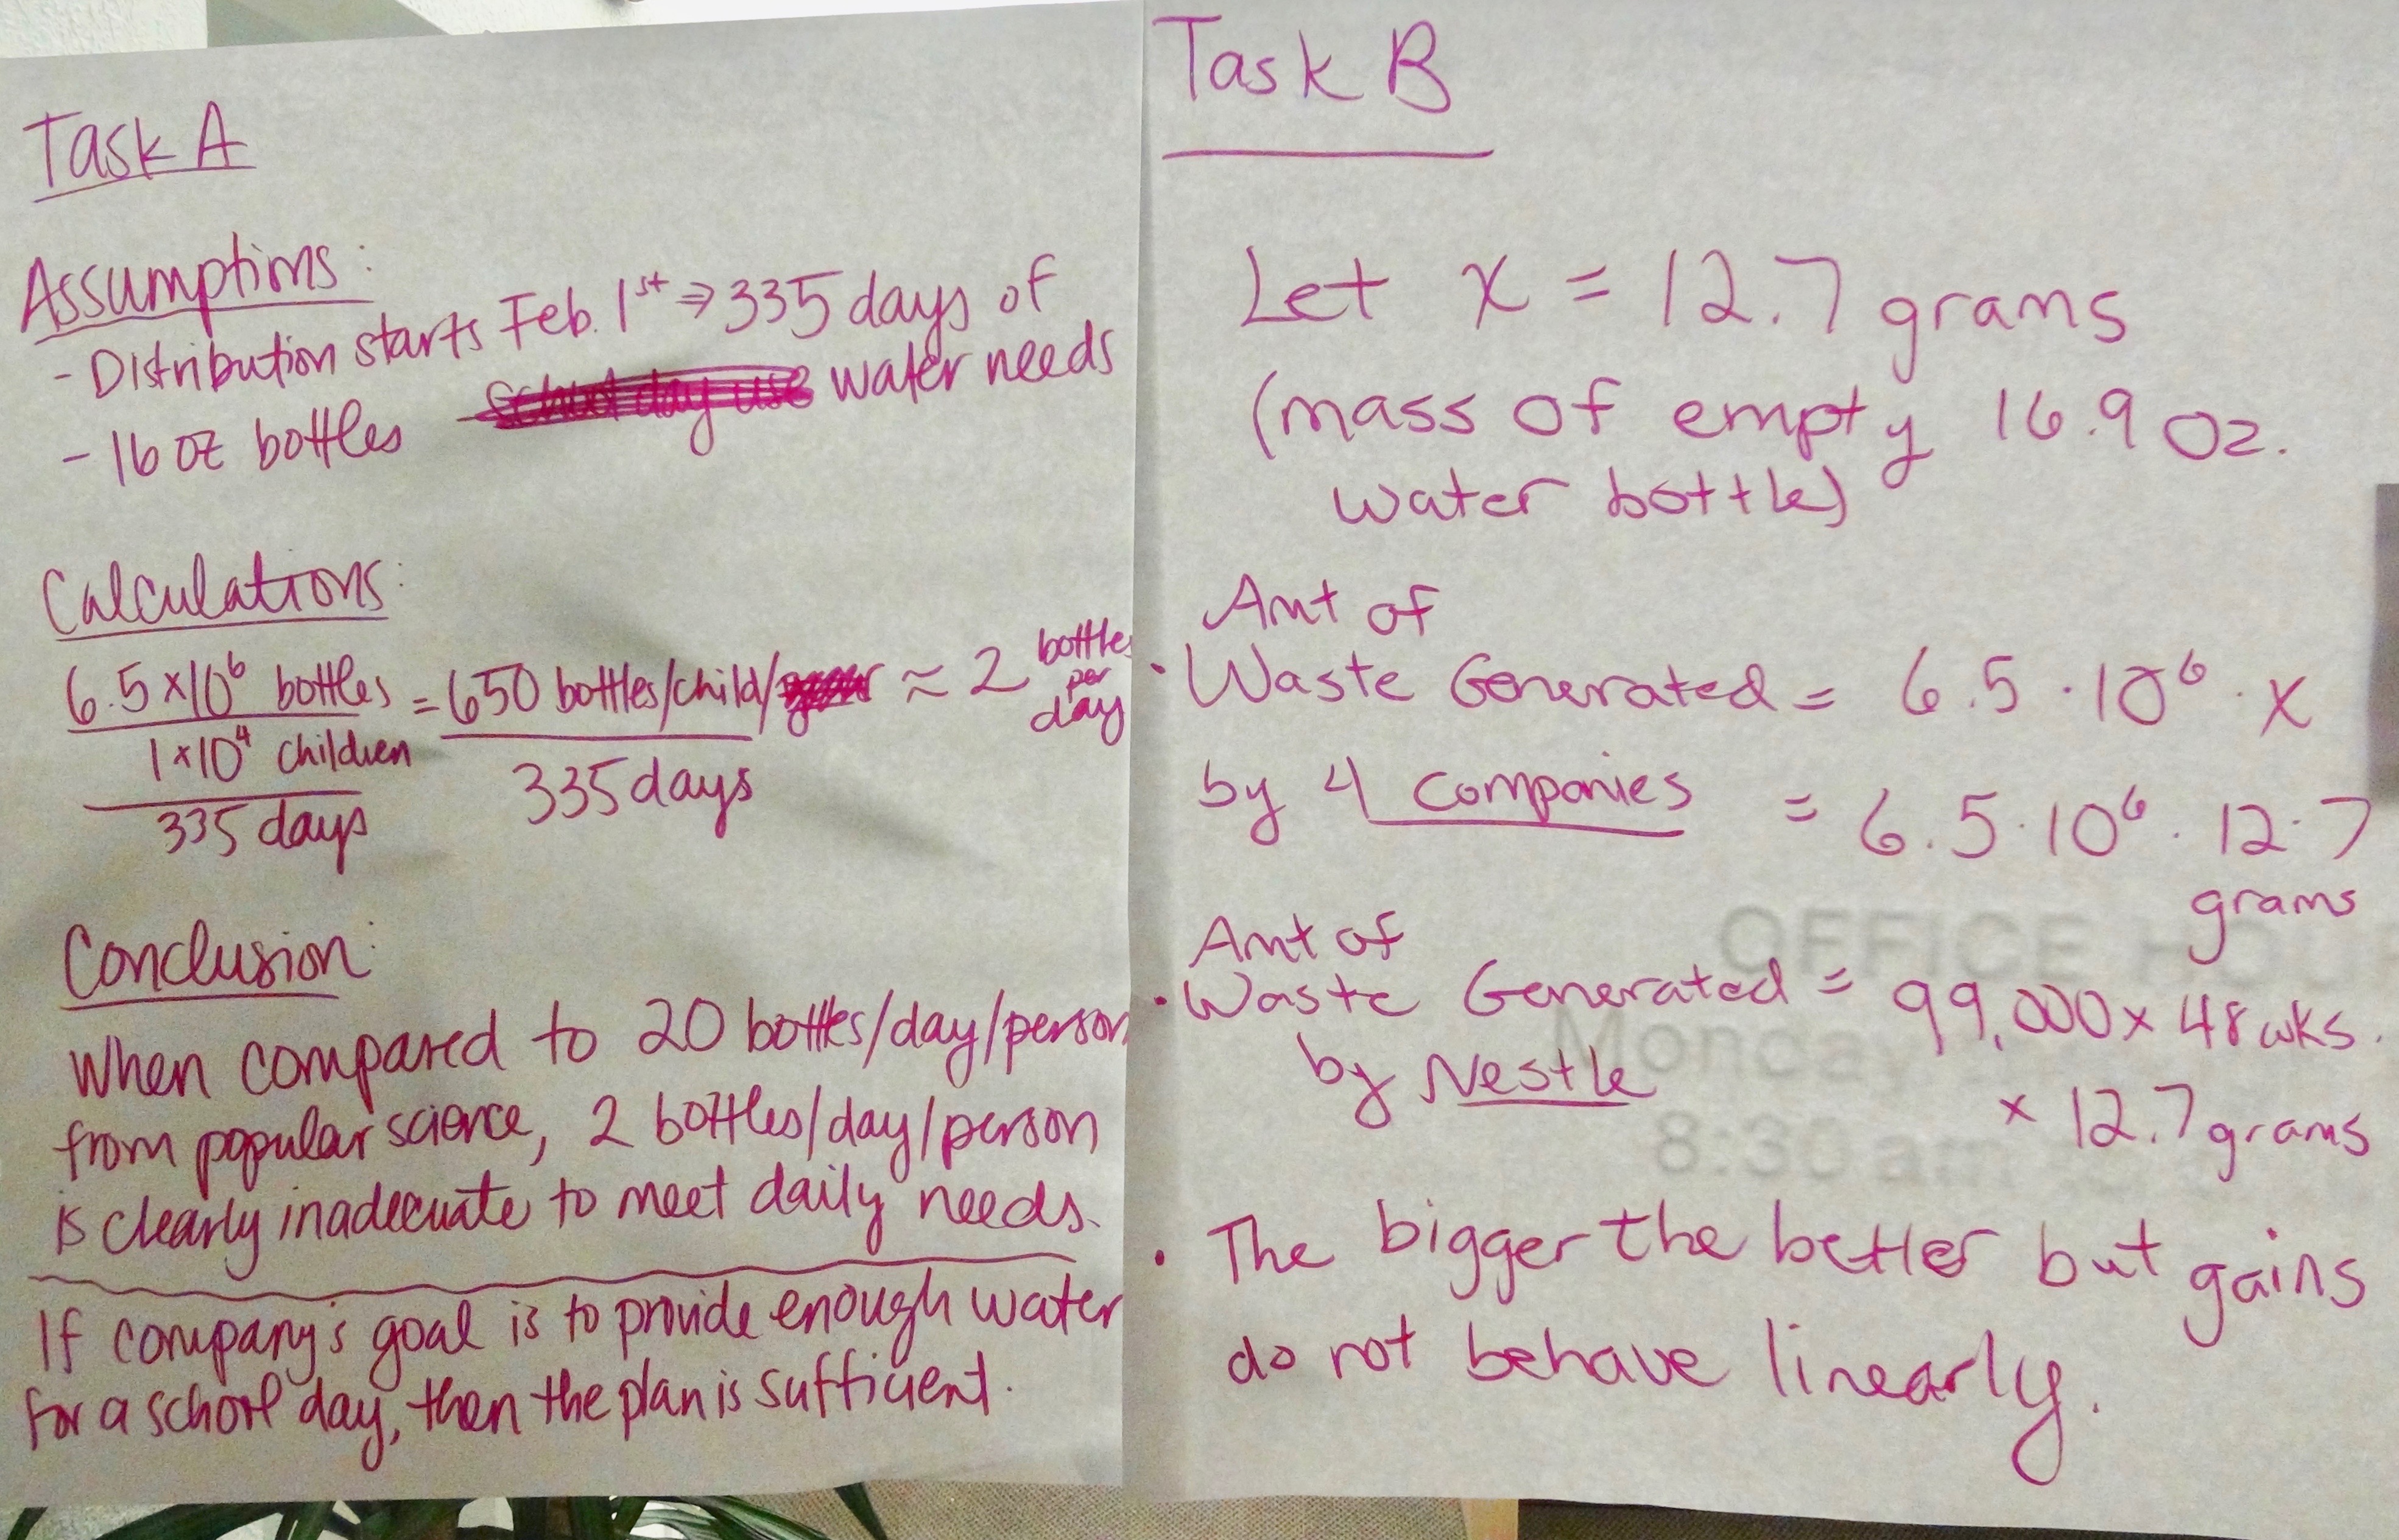 Task A
Assumptions:
- Distribution starts Feb. 1st ⇒ 335 days of
school day use water needs
- 16 oz bottles
Calculations:
6.5 x 10^6 bottles = 650 bottles/child/year ≈ 2 bottles per day
1 x 10^4 children
335 days
335 days
Conclusion:
When compared to 20 bottles/day/person
from popular science, 2 bottles/day/person
is clearly inadequate to meet daily needs.
If company's goal is to provide enough water
for a school day, then the plan is sufficient.
Task B
Let x = 12.7 grams
(mass of empty 16.9 oz.
water bottle)
Amt of
• Waste Generated = 6.5 · 10^6 · x
by 4 companies = 6.5 · 10^6 · 12.7
grams
Amt of
• Waste Generated = 99,000 x 48 wks.
by Nestle x 12.7 grams
• The bigger the better but gains
do not behave linearly.
OFFICE HOUR
Monday
8:30 am